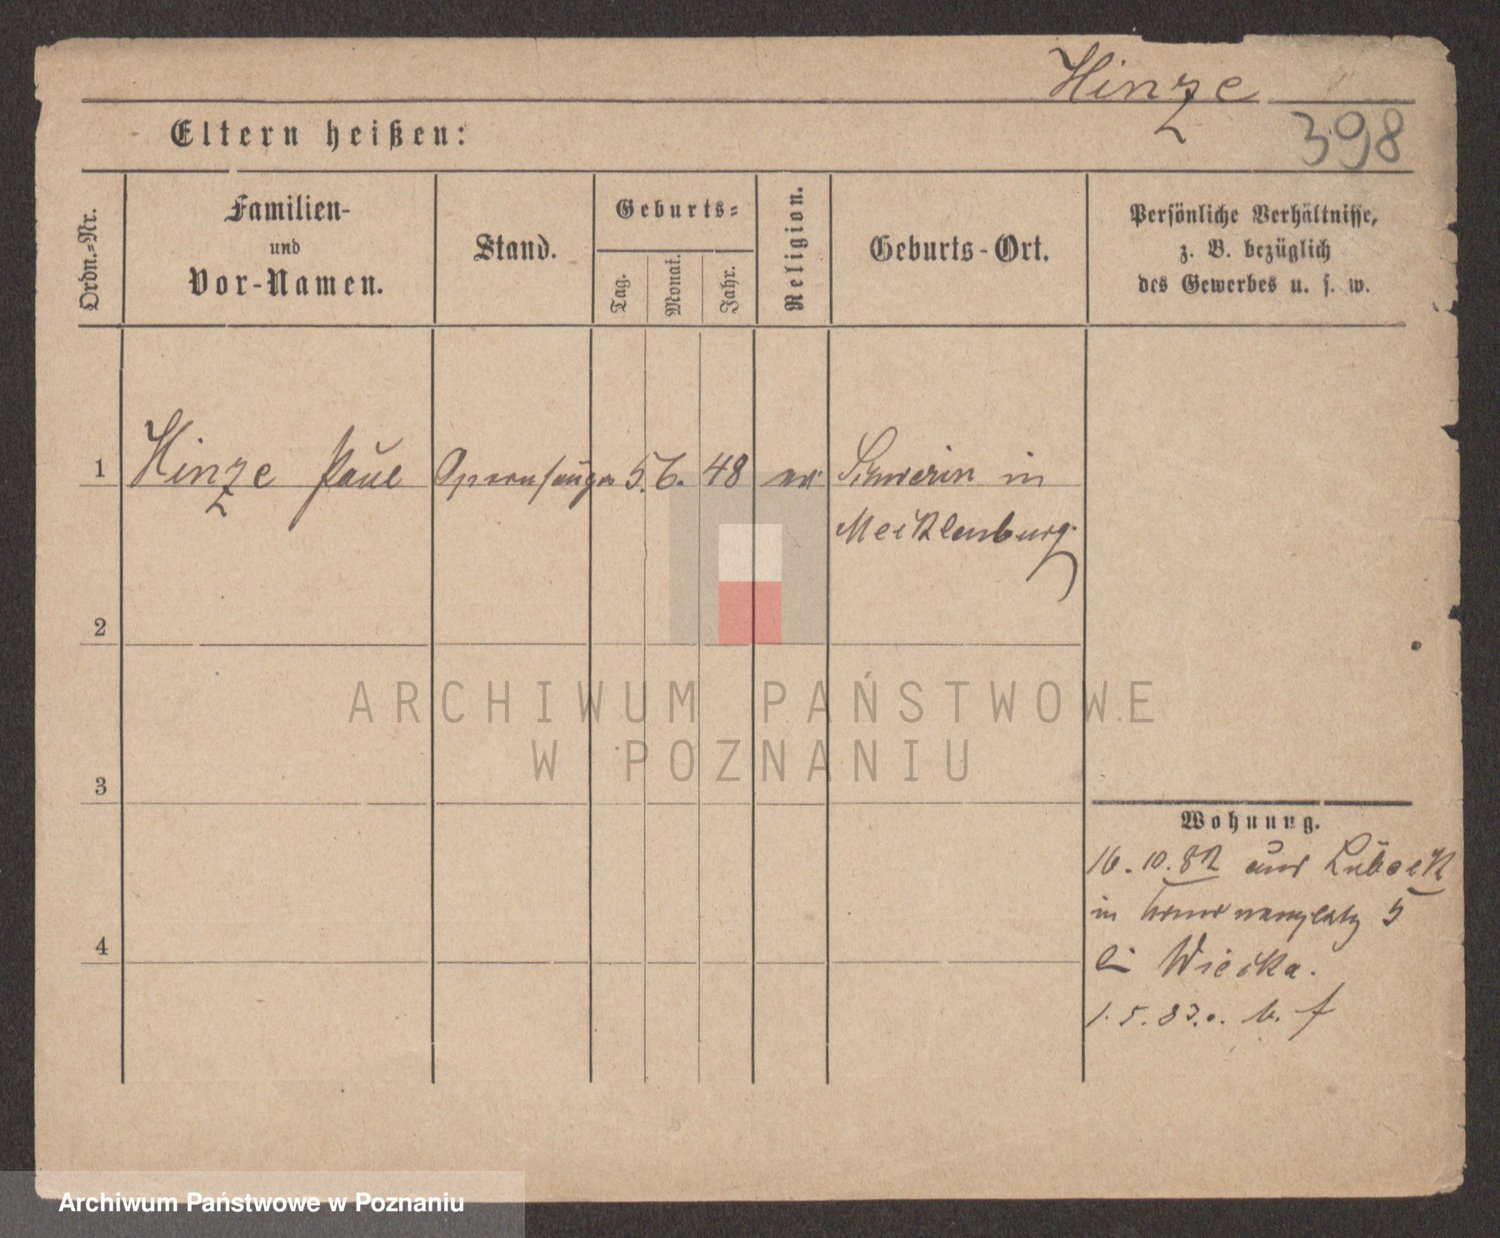 Hinze
398
Eltern heißen:
Ordn.-Nr.
Familien-
und
Vor-Namen.
Stand.
Geburts-
Tag.
Monat.
Jahr.
Religion.
Geburts-Ort.
Persönliche Verhältnisse,
z. B. bezüglich
des Gewerbes u. s. w.
1 Hinze Paul Opernsänger 5. 6. 48 ev Schwerin in
Mecklenburg
2
3
4
Wohnung.
16.10.82 aus Lübeck
in 5
bei
1.5.83.
ARCHIWUM PAŃSTWOWE
W POZNANIU
Archiwum Państwowe w Poznaniu